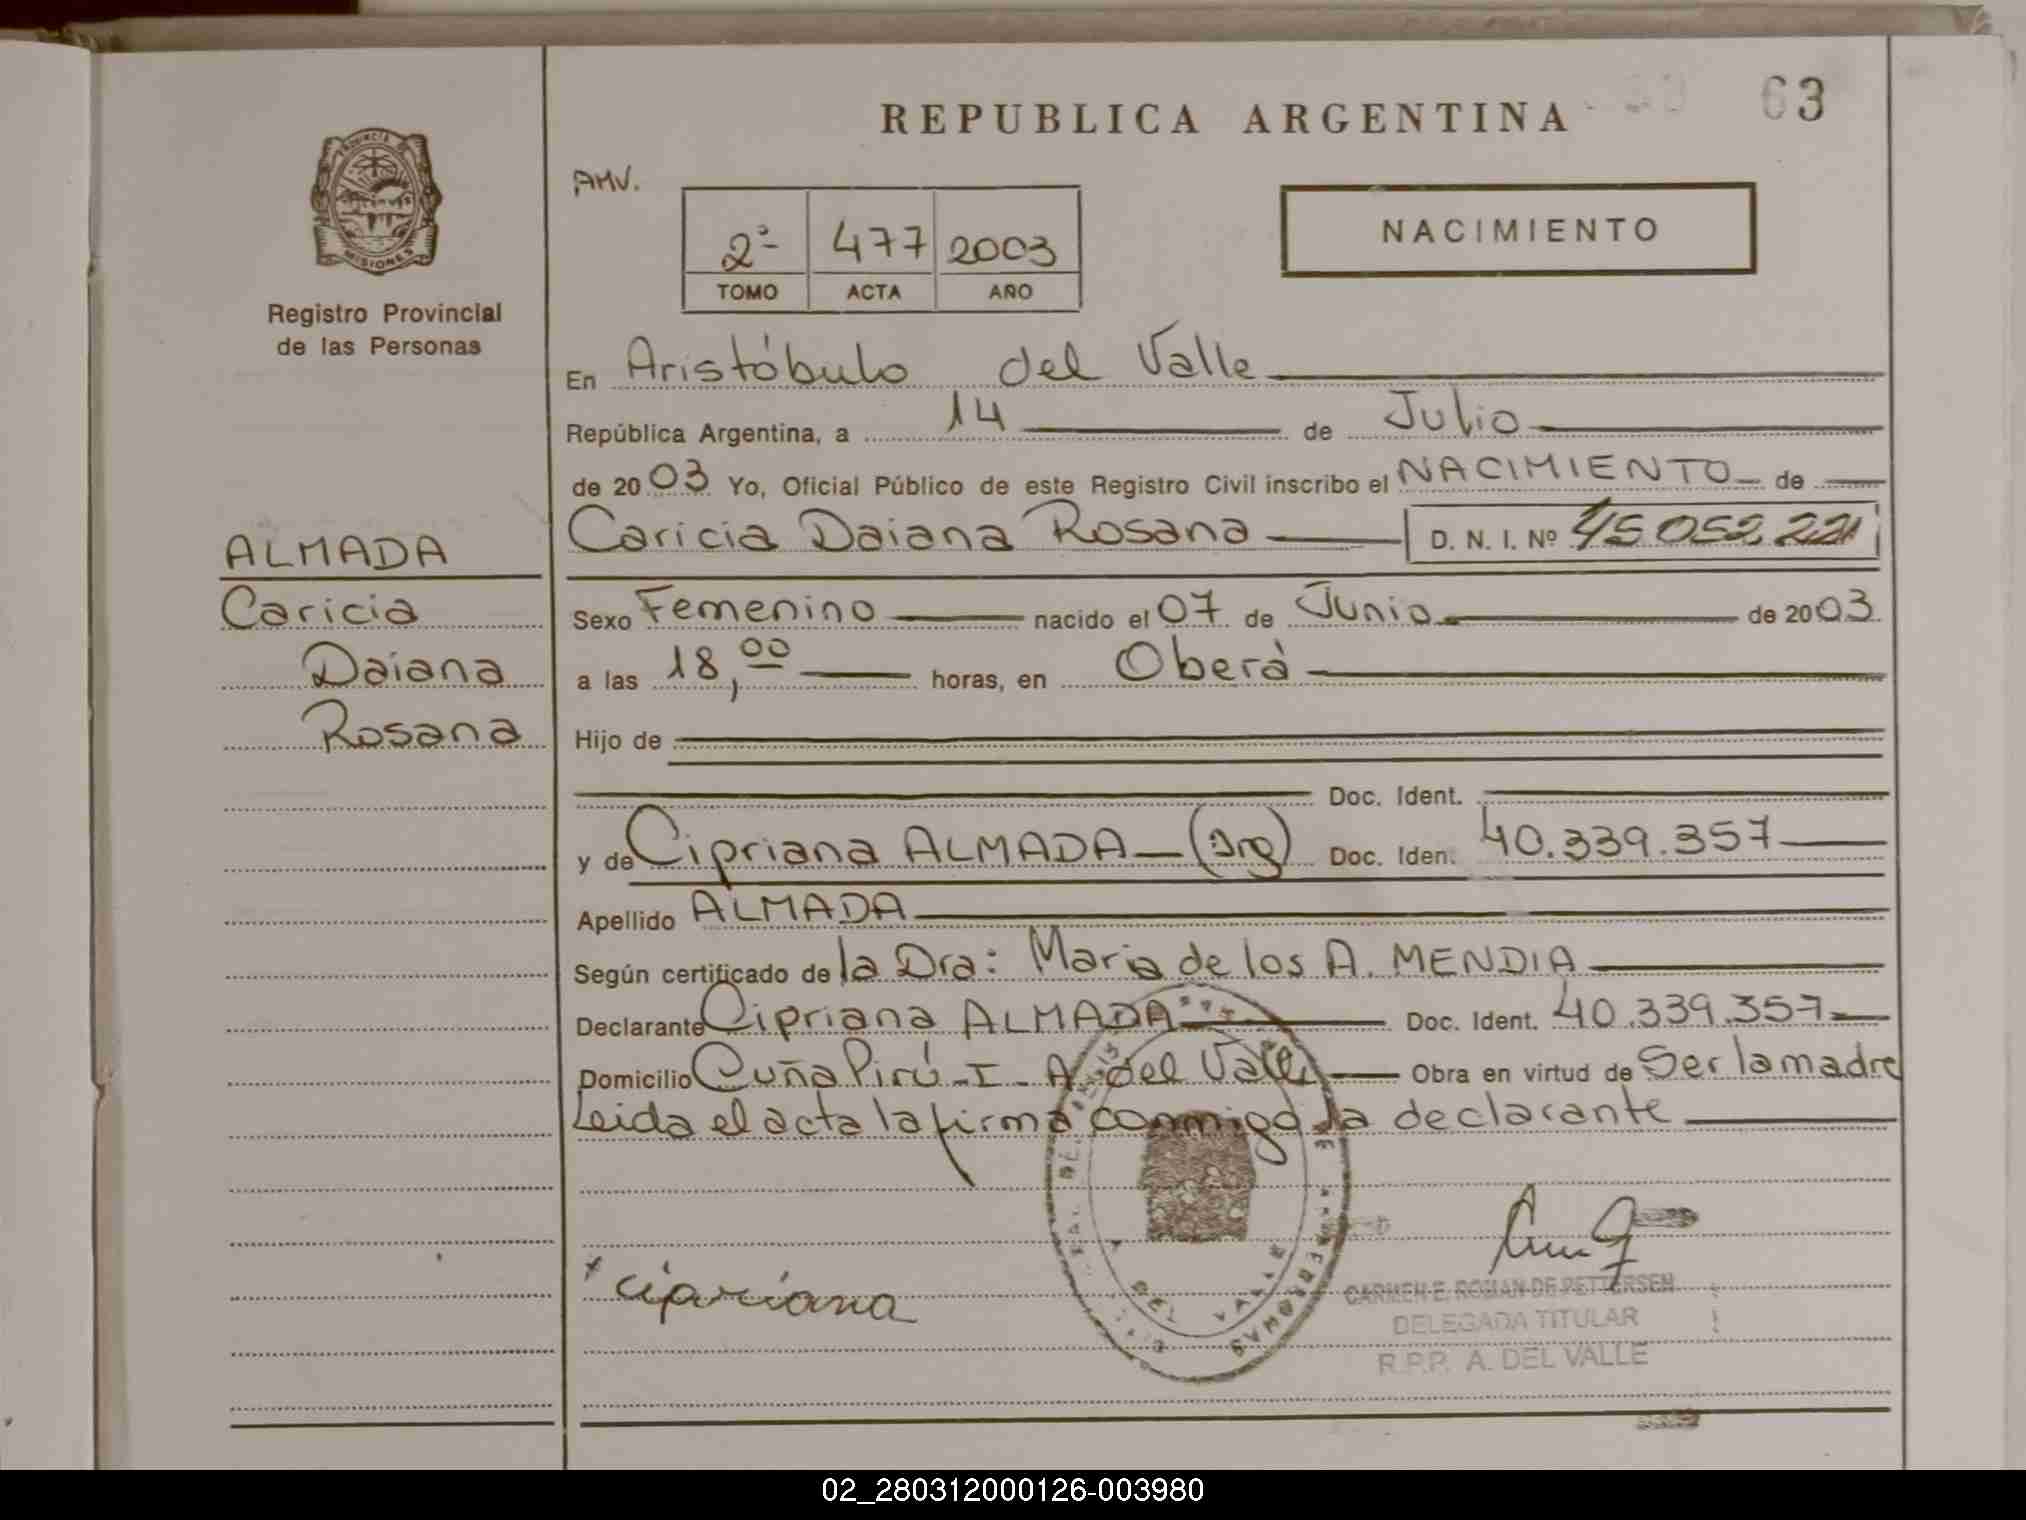 REPUBLICA ARGENTINA
63
PROVINCIA
MISIONES
Registro Provincial
de las Personas
AMV.
2ª 477 2003
TOMO ACTA AÑO
NACIMIENTO
En Aristóbulo del Valle
República Argentina, a 14 de Julio
de 2003 Yo, Oficial Público de este Registro Civil inscribo el NACIMIENTO de
Caricia Daiana Rosana D. N. I. Nº 45.052.221
ALMADA
Caricia
Daiana
Rosana
Sexo Femenino nacido el 07 de Junio de 2003
a las 18,00 horas, en Oberá
Hijo de
Doc. Ident.
y de Cipriana ALMADA (Arg) Doc. Iden. 40.339.357
Apellido ALMADA
Según certificado de la Dra: Maria de los A. MENDIA
Declarante Cipriana ALMADA Doc. Ident. 40.339.357
Domicilio Cuña Pirú - I - A. del Valle Obra en virtud de Ser la madre
Leida el acta la firma conmigo la declarante
cipriana
DEL VALLE
CARMEN E. ROMAN DE PETTERSEN
DELEGADA TITULAR
R.P.P. A. DEL VALLE
02_280312000126-003980